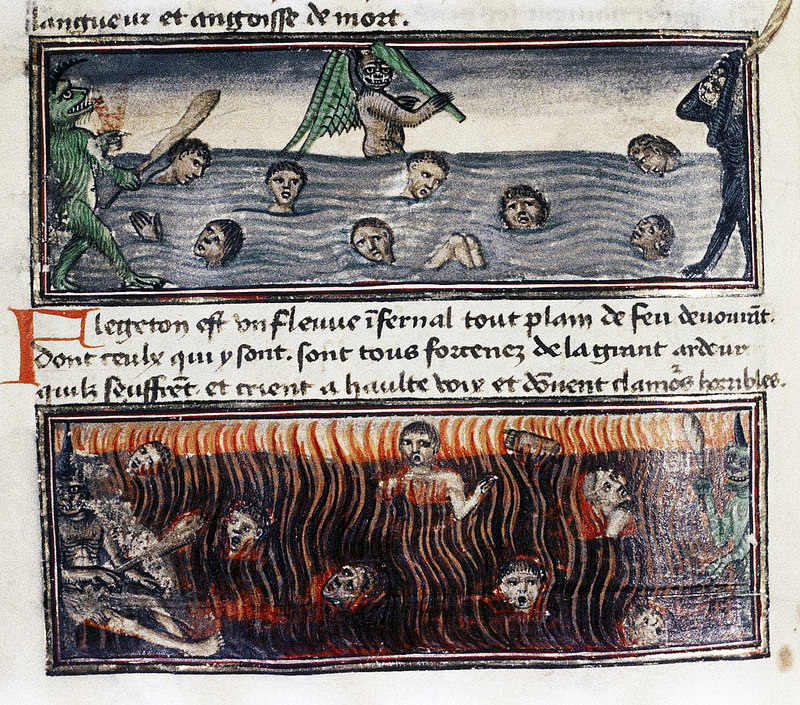 langueur et angoisse de mort.
Flegeton est un fleuve īfernal tout plain de feu devourāt.
dont ceulx qui y sont. sont tous forcenez de la grant ardeur
quilz seuffrēt. et crient a haulte voix et dōnent clamo͛s horribles.